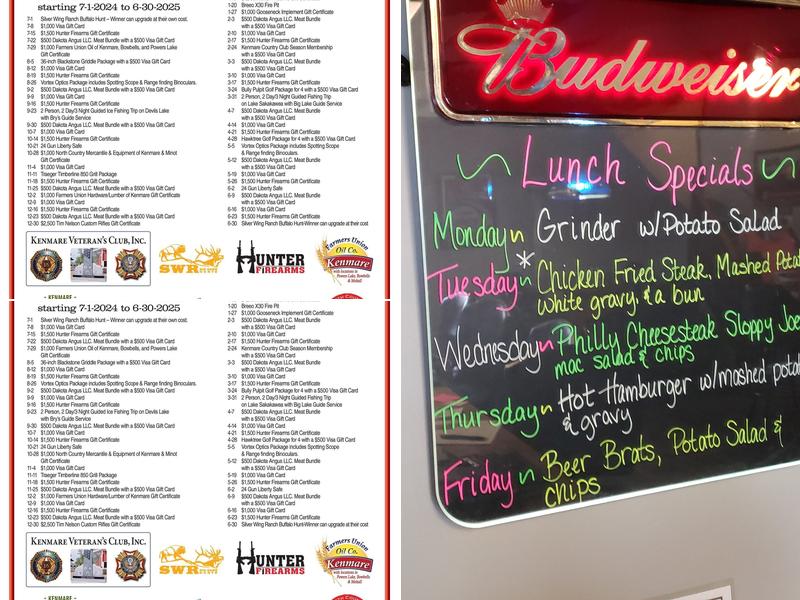 starting 7-1-2024 to 6-30-2025
7-1 Silver Wing Ranch Buffalo Hunt – Winner can upgrade at their own cost.
7-8 $1,000 Visa Gift Card
7-15 $1,500 Hunter Firearms Gift Certificate
7-22 $500 Dakota Angus LLC. Meat Bundle with a $500 Visa Gift Card
7-29 $1,000 Farmers Union Oil of Kenmare, Bowbells, and Powers Lake
Gift Certificate
8-5 36-inch Blackstone Griddle Package with a $500 Visa Gift Card
8-12 $1,000 Visa Gift Card
8-19 $1,500 Hunter Firearms Gift Certificate
8-26 Vortex Optics Package includes Spotting Scope & Range finding Binoculars.
9-2 $500 Dakota Angus LLC. Meat Bundle with a $500 Visa Gift Card
9-9 $1,000 Visa Gift Card
9-16 $1,500 Hunter Firearms Gift Certificate
9-23 2 Person, 2 Day/3 Night Guided Ice Fishing Trip on Devils Lake
with Bry's Guide Service
9-30 $500 Dakota Angus LLC. Meat Bundle with a $500 Visa Gift Card
10-7 $1,000 Visa Gift Card
10-14 $1,500 Hunter Firearms Gift Certificate
10-21 24 Gun Liberty Safe
10-28 $1,000 North Country Mercantile & Equipment of Kenmare & Minot
Gift Certificate
11-4 $1,000 Visa Gift Card
11-11 Traeger Timberline 850 Grill Package
11-18 $1,500 Hunter Firearms Gift Certificate
11-25 $500 Dakota Angus LLC. Meat Bundle with a $500 Visa Gift Card
12-2 $1,000 Farmers Union Hardware/Lumber of Kenmare Gift Certificate
12-9 $1,000 Visa Gift Card
12-16 $1,500 Hunter Firearms Gift Certificate
12-23 $500 Dakota Angus LLC. Meat Bundle with a $500 Visa Gift Card
12-30 $2,500 Tim Nelson Custom Rifles Gift Certificate
1-20 Breeo X30 Fire Pit
1-27 $1,000 Gooseneck Implement Gift Certificate
2-3 $500 Dakota Angus LLC. Meat Bundle
with a $500 Visa Gift Card
2-10 $1,000 Visa Gift Card
2-17 $1,500 Hunter Firearms Gift Certificate
2-24 Kenmare Country Club Season Membership
with a $500 Visa Gift Card
3-3 $500 Dakota Angus LLC. Meat Bundle
with a $500 Visa Gift Card
3-10 $1,000 Visa Gift Card
3-17 $1,500 Hunter Firearms Gift Certificate
3-24 Bully Pulpit Golf Package for 4 with a $500 Visa Gift Card
3-31 2 Person, 2 Day/3 Night Fishing Trip
on Lake Sakakawea with Big Lake Guide Service
4-7 $500 Dakota Angus LLC. Meat Bundle
with a $500 Visa Gift Card
4-14 $1,000 Visa Gift Card
4-21 $1,500 Hunter Firearms Gift Certificate
4-28 Hawktree Golf Package for 4 with a $500 Visa Gift Card
5-5 Vortex Optics Package includes Spotting Scope
& Range finding Binoculars.
5-12 $500 Dakota Angus LLC. Meat Bundle
with a $500 Visa Gift Card
5-19 $1,000 Visa Gift Card
5-26 $1,500 Hunter Firearms Gift Certificate
6-2 24 Gun Liberty Safe
6-9 $500 Dakota Angus LLC. Meat Bundle
with a $500 Visa Gift Card
6-16 $1,000 Visa Gift Card
6-23 $1,500 Hunter Firearms Gift Certificate
6-30 Silver Wing Ranch Buffalo Hunt-Winner can upgrade at their cost
KENMARE VETERAN'S CLUB, INC.
SWR
HUNTER
FIREARMS
Farmers Union
Oil Co.
Kenmare
with locations in
Powers Lake, Bowbells
& Mohall
KENMARE
starting 7-1-2024 to 6-30-2025
7-1 Silver Wing Ranch Buffalo Hunt – Winner can upgrade at their own cost.
7-8 $1,000 Visa Gift Card
7-15 $1,500 Hunter Firearms Gift Certificate
7-22 $500 Dakota Angus LLC. Meat Bundle with a $500 Visa Gift Card
7-29 $1,000 Farmers Union Oil of Kenmare, Bowbells, and Powers Lake
Gift Certificate
8-5 36-inch Blackstone Griddle Package with a $500 Visa Gift Card
8-12 $1,000 Visa Gift Card
8-19 $1,500 Hunter Firearms Gift Certificate
8-26 Vortex Optics Package includes Spotting Scope & Range finding Binoculars.
9-2 $500 Dakota Angus LLC. Meat Bundle with a $500 Visa Gift Card
9-9 $1,000 Visa Gift Card
9-16 $1,500 Hunter Firearms Gift Certificate
9-23 2 Person, 2 Day/3 Night Guided Ice Fishing Trip on Devils Lake
with Bry's Guide Service
9-30 $500 Dakota Angus LLC. Meat Bundle with a $500 Visa Gift Card
10-7 $1,000 Visa Gift Card
10-14 $1,500 Hunter Firearms Gift Certificate
10-21 24 Gun Liberty Safe
10-28 $1,000 North Country Mercantile & Equipment of Kenmare & Minot
Gift Certificate
11-4 $1,000 Visa Gift Card
11-11 Traeger Timberline 850 Grill Package
11-18 $1,500 Hunter Firearms Gift Certificate
11-25 $500 Dakota Angus LLC. Meat Bundle with a $500 Visa Gift Card
12-2 $1,000 Farmers Union Hardware/Lumber of Kenmare Gift Certificate
12-9 $1,000 Visa Gift Card
12-16 $1,500 Hunter Firearms Gift Certificate
12-23 $500 Dakota Angus LLC. Meat Bundle with a $500 Visa Gift Card
12-30 $2,500 Tim Nelson Custom Rifles Gift Certificate
1-20 Breeo X30 Fire Pit
1-27 $1,000 Gooseneck Implement Gift Certificate
2-3 $500 Dakota Angus LLC. Meat Bundle
with a $500 Visa Gift Card
2-10 $1,000 Visa Gift Card
2-17 $1,500 Hunter Firearms Gift Certificate
2-24 Kenmare Country Club Season Membership
with a $500 Visa Gift Card
3-3 $500 Dakota Angus LLC. Meat Bundle
with a $500 Visa Gift Card
3-10 $1,000 Visa Gift Card
3-17 $1,500 Hunter Firearms Gift Certificate
3-24 Bully Pulpit Golf Package for 4 with a $500 Visa Gift Card
3-31 2 Person, 2 Day/3 Night Fishing Trip
on Lake Sakakawea with Big Lake Guide Service
4-7 $500 Dakota Angus LLC. Meat Bundle
with a $500 Visa Gift Card
4-14 $1,000 Visa Gift Card
4-21 $1,500 Hunter Firearms Gift Certificate
4-28 Hawktree Golf Package for 4 with a $500 Visa Gift Card
5-5 Vortex Optics Package includes Spotting Scope
& Range finding Binoculars.
5-12 $500 Dakota Angus LLC. Meat Bundle
with a $500 Visa Gift Card
5-19 $1,000 Visa Gift Card
5-26 $1,500 Hunter Firearms Gift Certificate
6-2 24 Gun Liberty Safe
6-9 $500 Dakota Angus LLC. Meat Bundle
with a $500 Visa Gift Card
6-16 $1,000 Visa Gift Card
6-23 $1,500 Hunter Firearms Gift Certificate
6-30 Silver Wing Ranch Buffalo Hunt-Winner can upgrade at their cost
KENMARE VETERAN'S CLUB, INC.
SWR
HUNTER
FIREARMS
Farmers Union
Oil Co.
Kenmare
with locations in
Powers Lake, Bowbells
& Mohall
KENMARE
Budweiser
Lunch Specials
Monday Grinder w/Potato Salad
Tuesday *Chicken Fried Steak, Mashed Potat
white gravy, & a bun
Wednesday Philly Cheesesteak Sloppy Joe
mac salad & chips
Thursday Hot Hamburger w/mashed potat
& gravy
Friday Beer Brats, Potato Salad &
chips